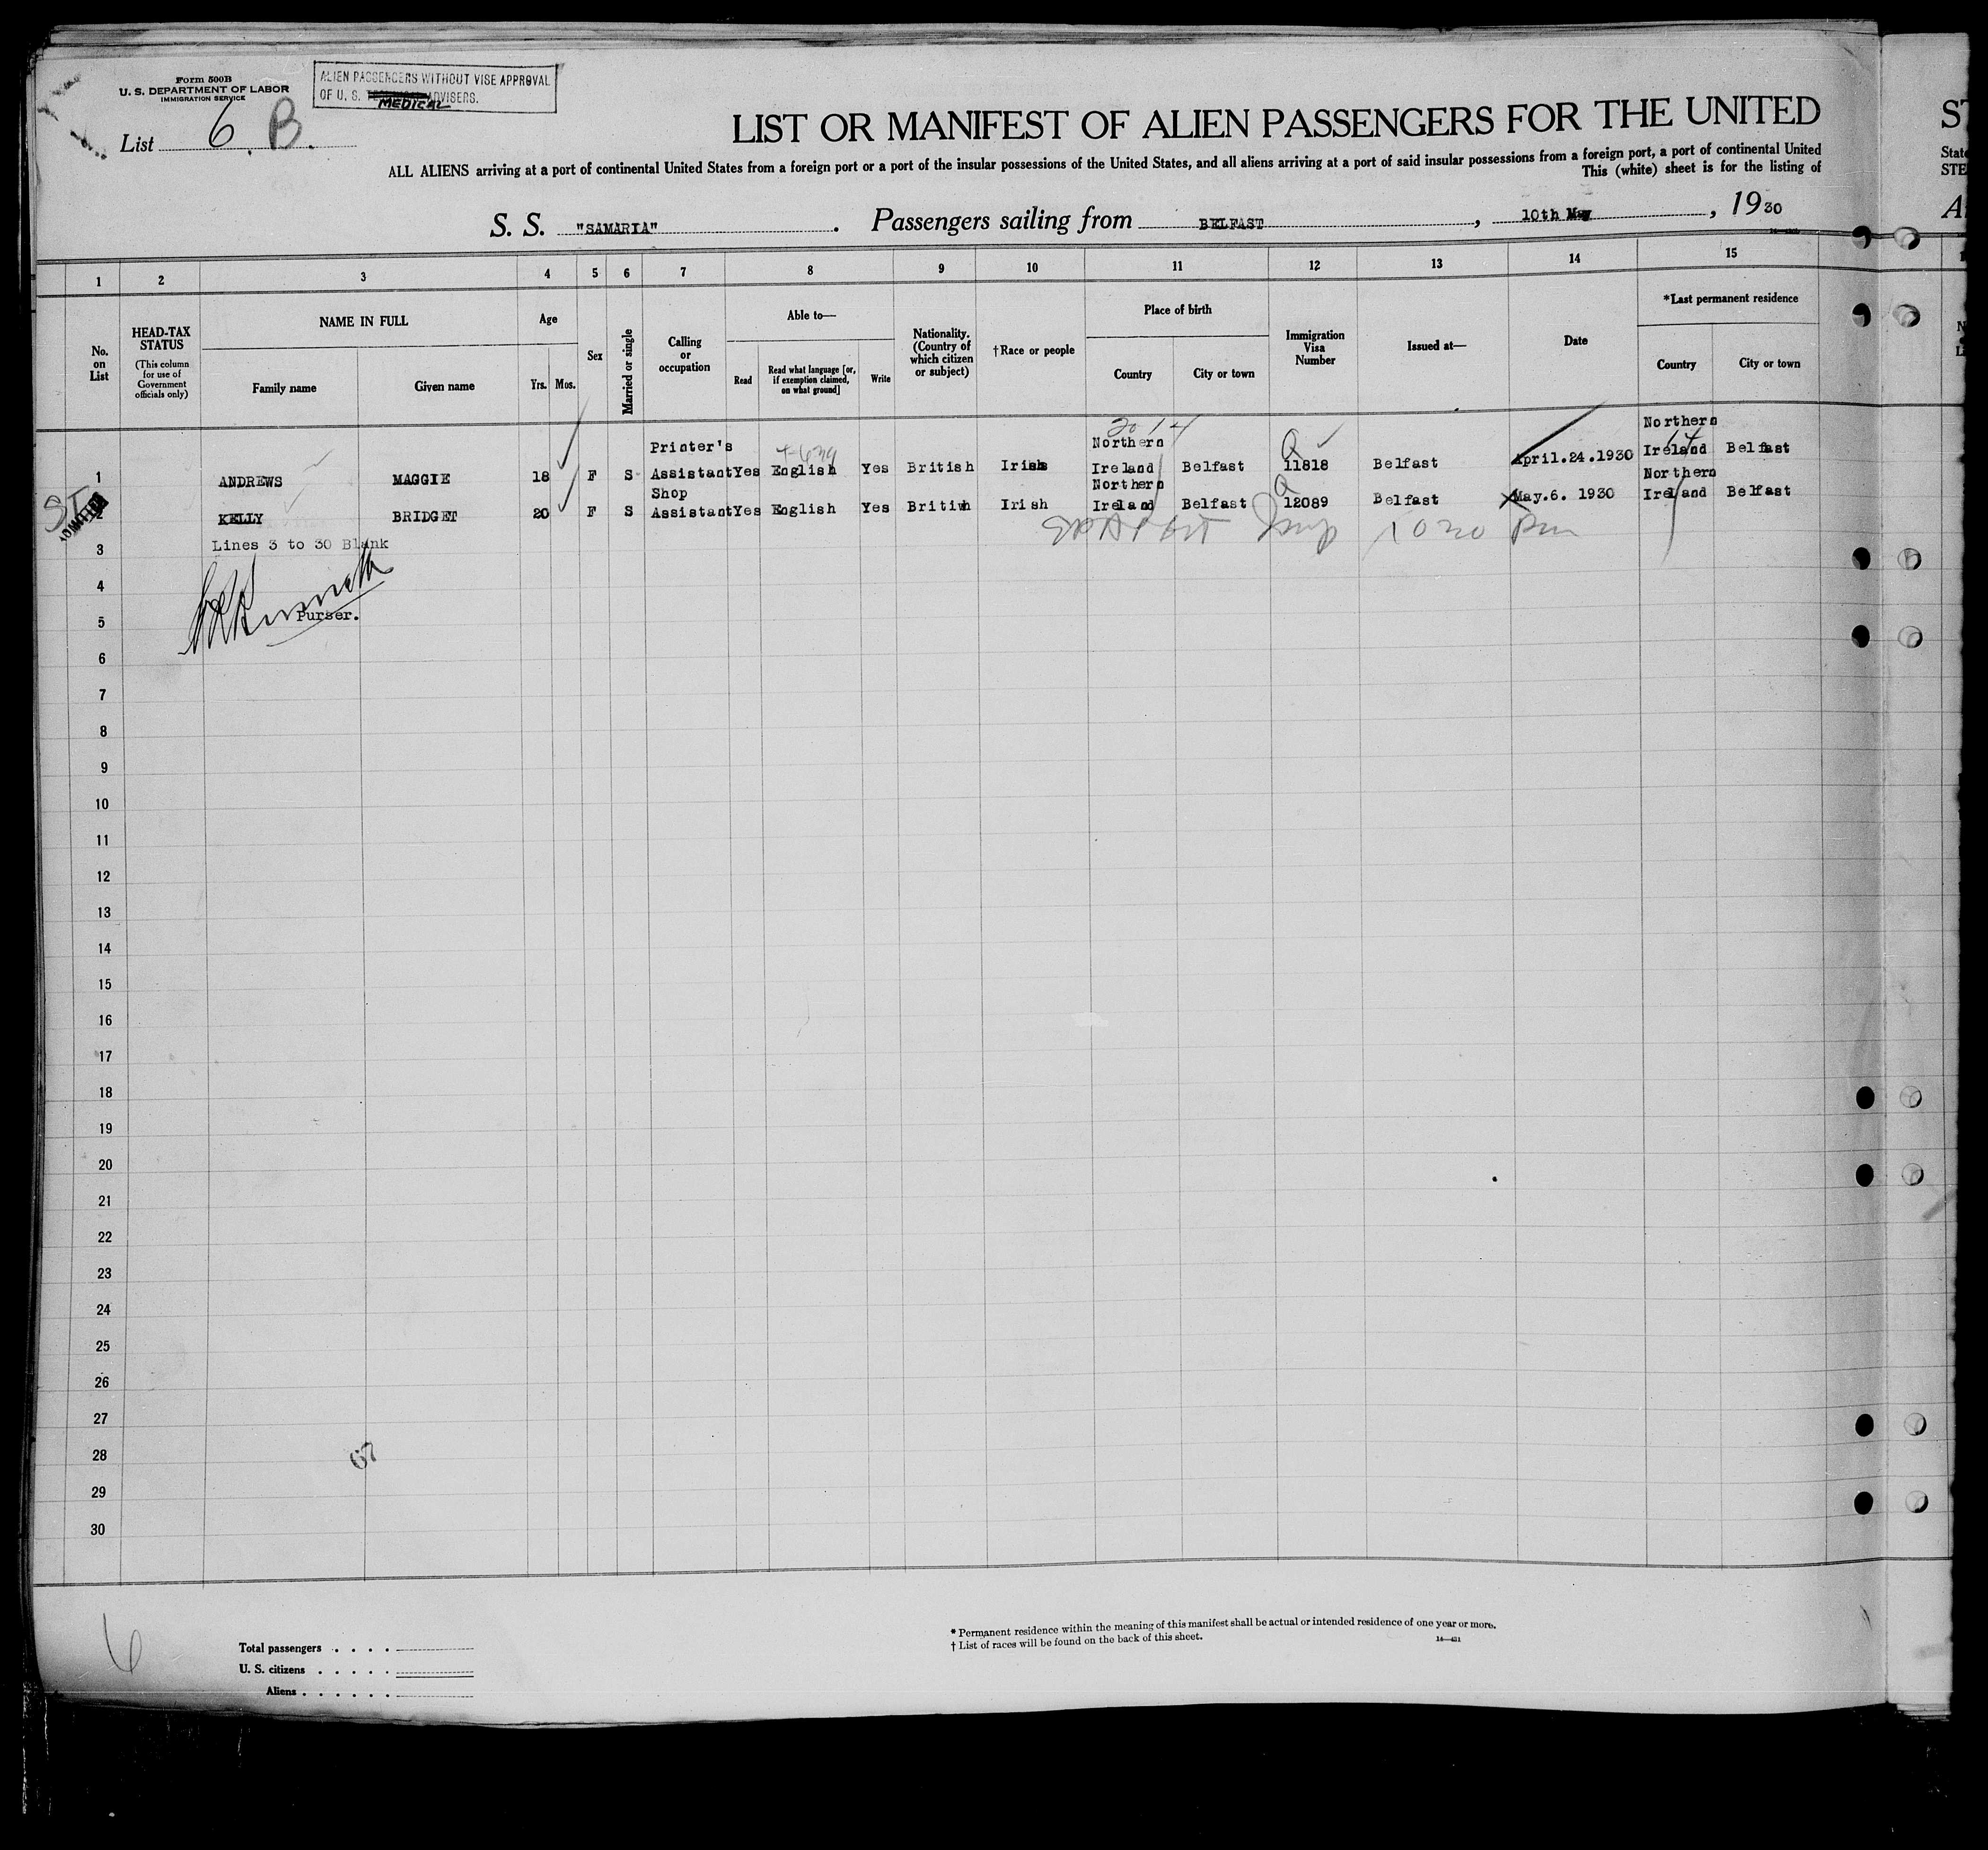 Form 500B
U. S. DEPARTMENT OF LABOR
IMMIGRATION SERVICE
ALIEN PASSENGERS WITHOUT VISE APPROVAL
OF U. S. MEDICAL ADVISERS.
List 6. B.
LIST OR MANIFEST OF ALIEN PASSENGERS FOR THE UNITED
ALL ALIENS arriving at a port of continental United States from a foreign port or a port of the insular possessions of the United States, and all aliens arriving at a port of said insular possessions from a foreign port, a port of continental United
This (white) sheet is for the listing of
S. S. "SAMARIA". Passengers sailing from BELFAST, 10th May, 1930
1 2 3 4 5 6 7 8 9 10 11 12 13 14 15
No. on List
HEAD-TAX STATUS
(This column for use of Government officials only)
NAME IN FULL
Family name Given name
Age
Yrs. Mos.
Sex
Married or single
Calling or occupation
Able to—
Read
Read what language [or, if exemption claimed, on what ground]
Write
Nationality. (Country of which citizen or subject)
†Race or people
Place of birth
Country City or town
Immigration Visa Number
Issued at—
Date
*Last permanent residence
Country City or town
1 ANDREWS MAGGIE 18 F S Printer's Assistant Yes English Yes British Irish Northern Ireland Belfast 11818 Belfast April.24.1930 Northern Ireland Belfast
2 KELLY BRIDGET 20 F S Shop Assistant Yes English Yes Britiwh Irish Northern Ireland Belfast 12089 Belfast May.6. 1930 Northern Ireland Belfast
3 Lines 3 to 30 Blank
4
5 Purser.
6
7
8
9
10
11
12
13
14
15
16
17
18
19
20
21
22
23
24
25
26
27
28
67
29
30
6
Total passengers
U. S. citizens
Aliens
* Permanent residence within the meaning of this manifest shall be actual or intended residence of one year or more.
† List of races will be found on the back of this sheet.